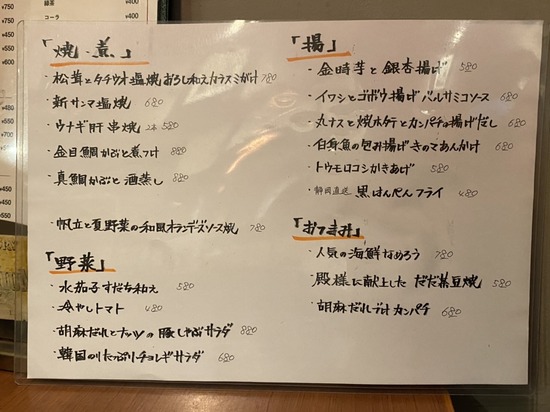 緑茶 ¥400
コーラ ¥400
「焼・煮」
・松茸とタチウオ塩焼おろし和えカラスミがけ 780
・新サンマ塩焼 680
・ウナギ肝串焼 2本 580
・金目鯛かぶと煮つけ 880
・真鯛かぶと酒蒸し 880
・帆立と夏野菜の和風オランデーズソース焼 780
「野菜」
・水茄子すだち和え 580
・冷やしトマト 480
・胡麻だれとナッツの豚しゃぶサラダ 880
・韓国のりたっぷりチョレギサラダ 680
「揚」
・金時芋と銀杏揚げ 580
・イワシとゴボウ揚げバルサミコソース 680
・丸ナスと焼ホタテとカンパチの揚げだし 680
・白身魚の包み揚げきのこあんかけ 680
・トウモロコシかきあげ 580
・静岡直送 黒はんぺんフライ 480
「おつまみ」
・人気の海鮮なめろう 780
・殿様に献上した だだ茶豆焼 580
・胡麻だれづけカンパチ 680